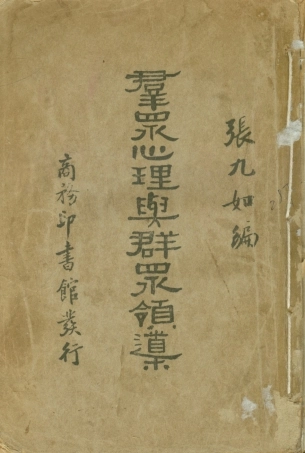 張九如編
羣眾心理與群眾領導
商務印書館發行